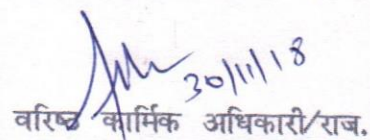 30/11/18
वरिष्ठ कार्मिक अधिकारी/राज.